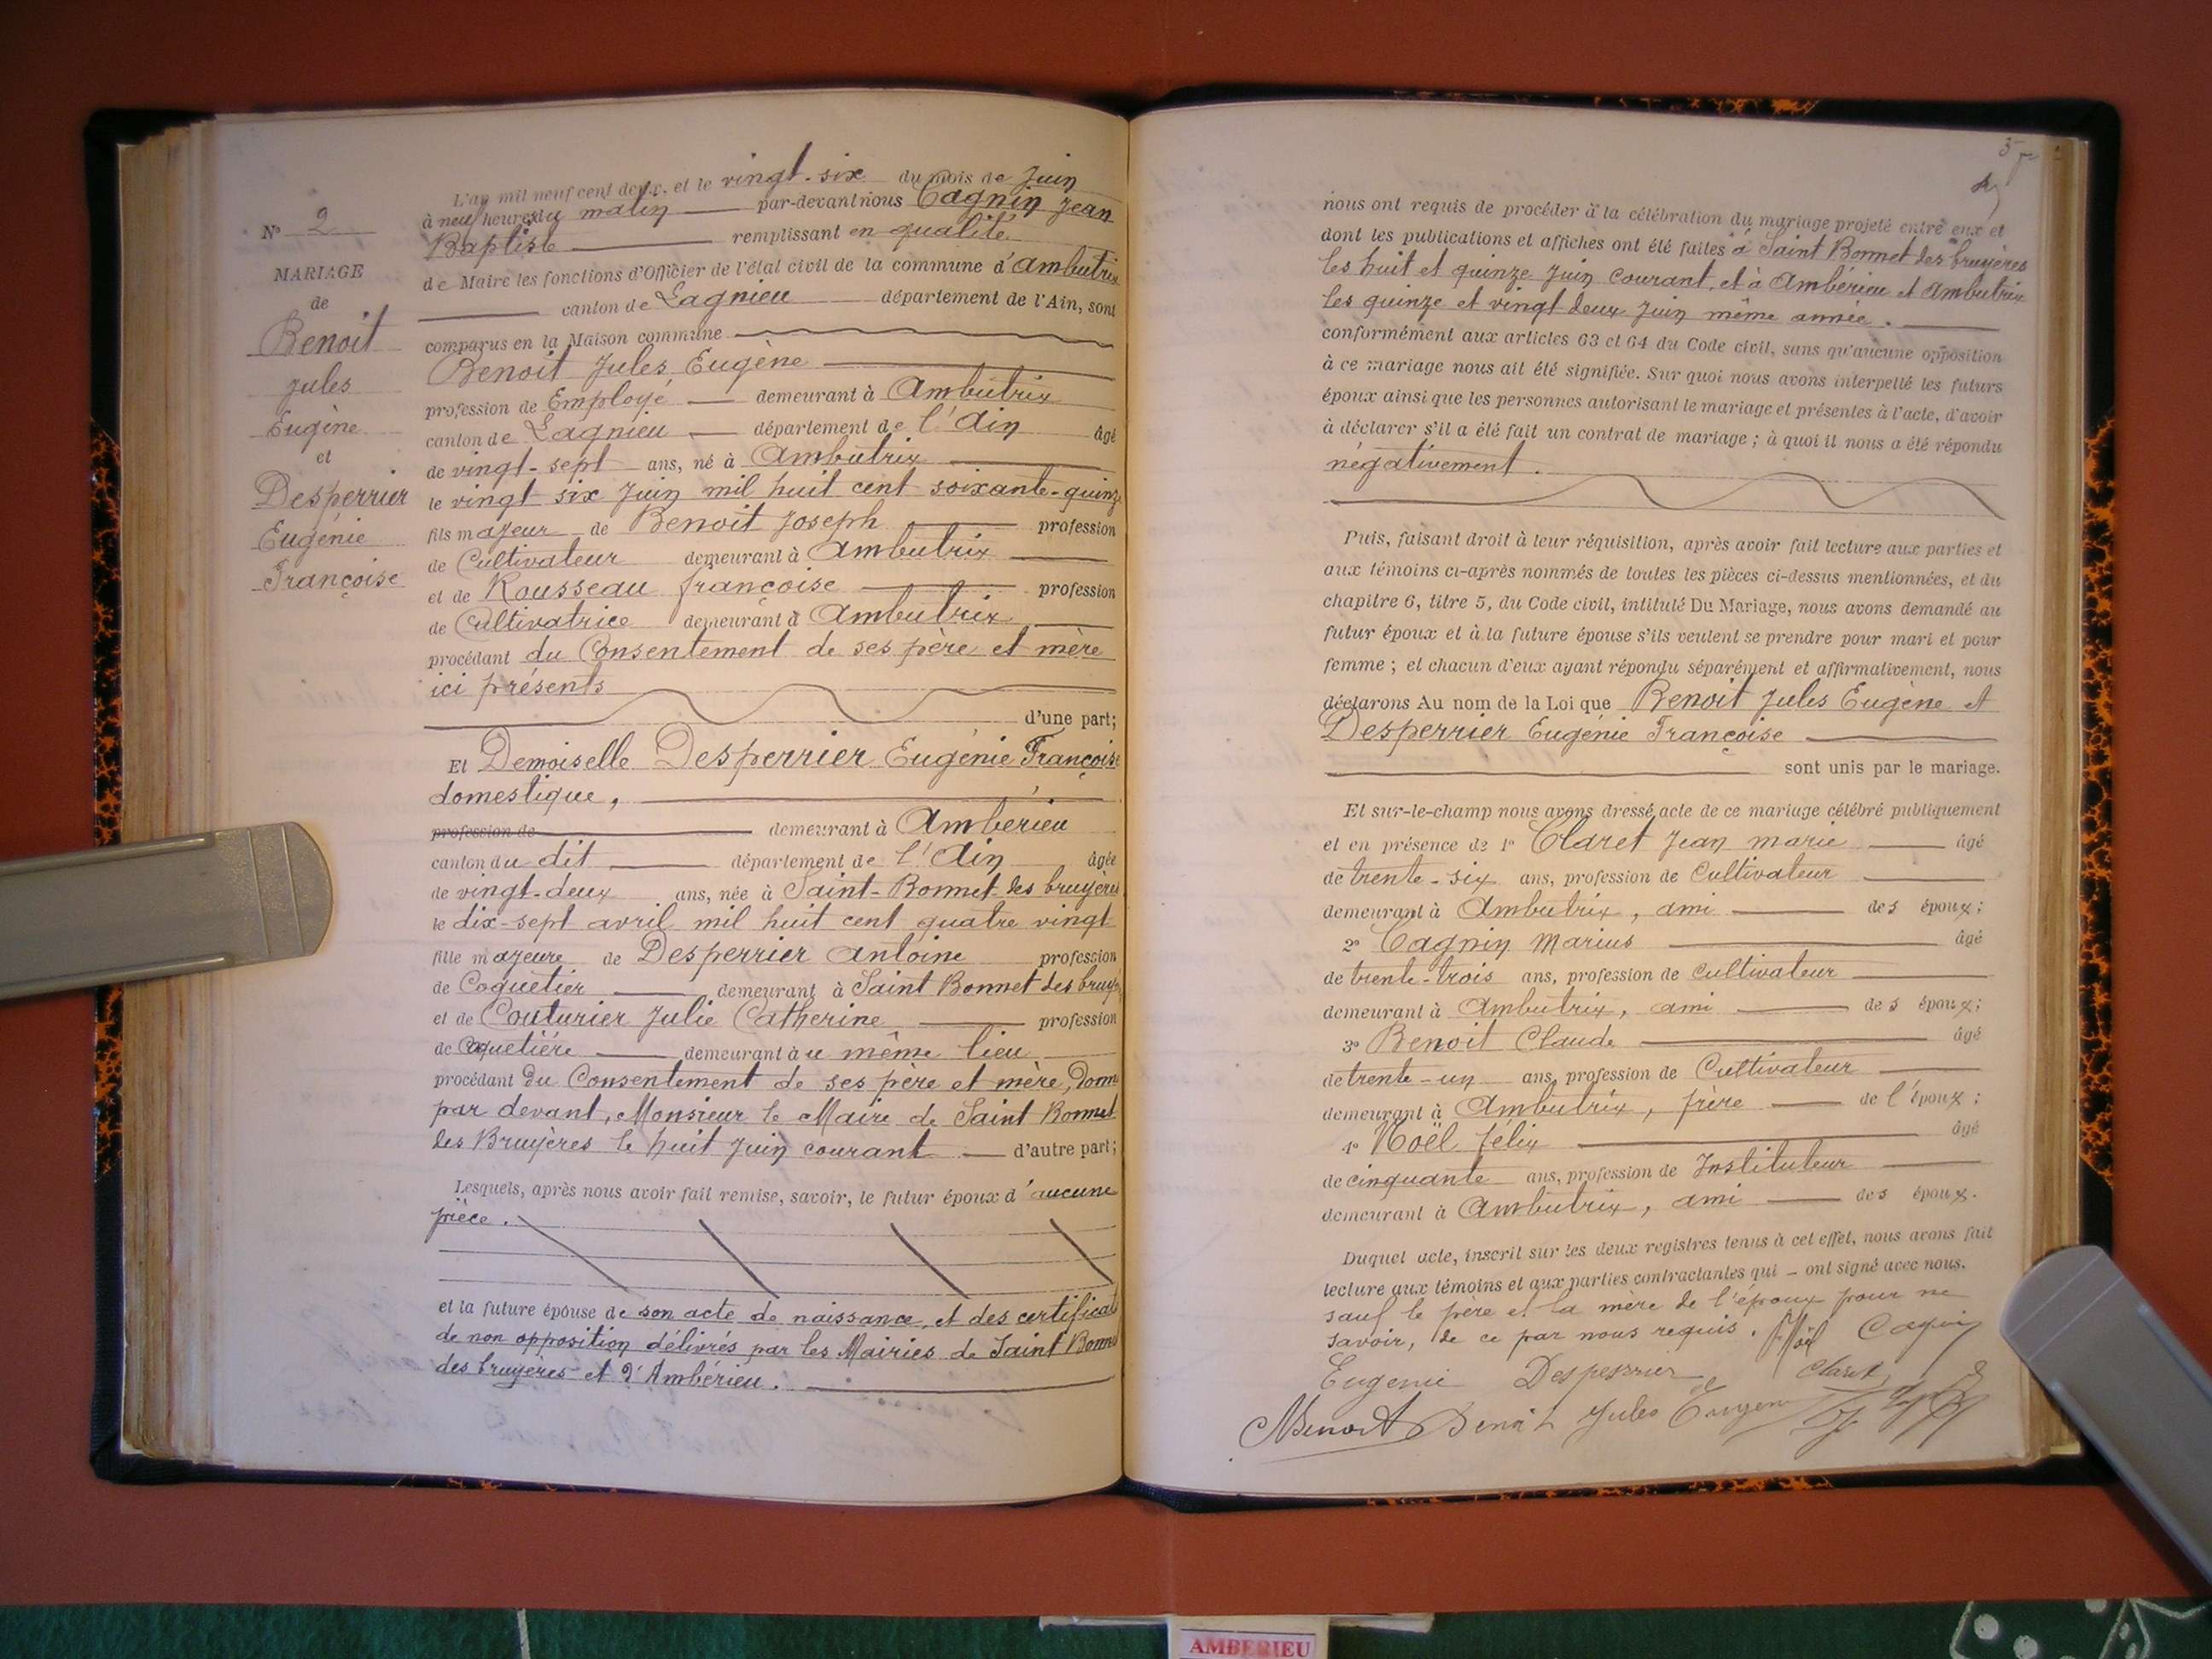 N° 2
MARIAGE
de
Benoit
Jules
Eugène
et
Desperrier
Eugénie
Françoise
L'an mil neuf cent deux, et le vingt-six du mois de Juin
à neuf heures du matin par-devant nous Cagnin Jean
Baptiste remplissant en qualité
de Maire les fonctions d'Officier de l'état civil de la commune d'Ambutrix
canton de Lagnieu département de l'Ain, sont
comparus en la Maison commune
Benoit Jules Eugène
profession de Employé demeurant à Ambutrix
canton de Lagnieu département de l'Ain âgé
de vingt-sept ans, né à Ambutrix
le vingt six Juin mil huit cent soixante-quinze
fils majeur de Benoit Joseph profession
de Cultivateur demeurant à Ambutrix
et de Rousseau françoise profession
de Cultivatrice demeurant à Ambutrix
procédant du Consentement de ses père et mère
ici présents
d'une part;
Et Demoiselle Desperrier Eugénie Françoise
domestique,
profession de demeurant à Ambérieu
canton du dit département de l'Ain âgée
de vingt-deux ans, née à Saint-Bonnet-des bruyères
le dix-sept avril mil huit cent quatre vingt
fille majeure de Desperrier Antoine profession
de Coquetier demeurant à Saint Bonnet des bruy
et de Couturier Julie Catherine profession
de Coquetière demeurant à u même lieu
procédant du Consentement de ses père et mère, Donn
par devant, Monsieur le Maire de Saint Bonnet
des Bruyères le huit Juin courant d'autre part;
Lesquels, après nous avoir fait remise, savoir, le futur époux d'aucune
pièce.
et la future épouse de son acte de naissance, et des certificats
de non opposition délivrés par les Mairies de Saint Bonnet
des bruyères et d'Ambérieu.
5
nous ont requis de procéder à la célébration du mariage projeté entre eux et
dont les publications et affiches ont été faites à Saint Bonnet des bruyères
les huit et quinze Juin courant, et à Ambérieu et Ambutrix
les quinze et vingt deux Juin même année.
conformément aux articles 63 et 64 du Code civil, sans qu'aucune opposition
à ce mariage nous ait été signifiée. Sur quoi nous avons interpellé les futurs
époux ainsi que les personnes autorisant le mariage et présentes à l'acte, d'avoir
à déclarer s'il a été fait un contrat de mariage ; à quoi il nous a été répondu
négativement.
Puis, faisant droit à leur réquisition, après avoir fait lecture aux parties et
aux témoins ci-après nommés de toutes les pièces ci-dessus mentionnées, et du
chapitre 6, titre 5, du Code civil, intitulé Du Mariage, nous avons demandé au
futur époux et à la future épouse s'ils veulent se prendre pour mari et pour
femme ; et chacun d'eux ayant répondu séparément et affirmativement, nous
déclarons Au nom de la Loi que Benoit Jules Eugène et
Desperrier Eugénie Françoise
sont unis par le mariage.
Et sur-le-champ nous avons dressé acte de ce mariage célébré publiquement
et en présence de 1° Claret Jean marie âgé
de trente-six ans, profession de Cultivateur
demeurant à Ambutrix, ami des époux;
2° Cagnin Marius âgé
de trente-trois ans, profession de Cultivateur
demeurant à Ambutrix, ami des époux;
3° Benoit Claude âgé
de trente-un ans, profession de Cultivateur
demeurant à Ambutrix, frère de l'époux;
4° Noël félix âgé
de cinquante ans, profession de Instituteur
demeurant à Ambutrix, ami des époux.
Duquel acte, inscrit sur les deux registres tenus à cet effet, nous avons fait
lecture aux témoins et aux parties contractantes qui - ont signé avec nous.
sauf le père et la mère de l'époux pour ne
savoir, de ce par nous requis. F. Noël Cagnin
Eugenie Desperrier Claret
Benoit Benoit Jules Eugene
AMBERIEU